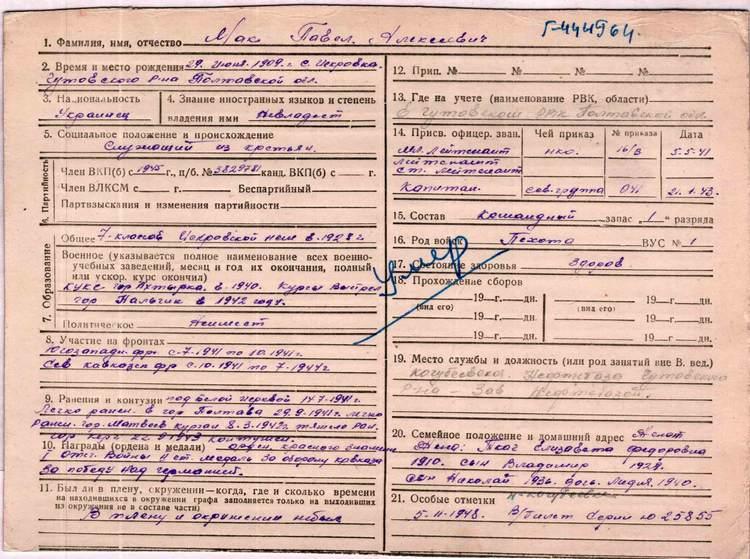 Г-444964.
1. Фамилия, имя, отчество Мак Павел Алексеевич
2. Время и место рождения 29. июня. 1909. г. с. Искровка.
Чутовского р-на Полтавской обл.
3. Национальность
Украинец
4. Знание иностранных языков и степень
владения ими Невладеет
5. Социальное положение и происхождение
Служащий из крестьян.
6. Партийность
Член ВКП(б) с 1945 г., п/б. № 3829781 канд. ВКП(б) с — г.
Член ВЛКСМ с — г. Беспартийный
Партвзыскания и изменения партийности
7. Образование
Общее 7-классов Искровской в-1928 г
Военное (указывается полное наименование всех военно-
учебных заведений, месяц и год их окончания, полный
или ускор. курс окончил)
КУКС гор Ахтырка. в-1940. Курсы Выстрел
гор Нальчик в 1942 году.
Политическое Неимеет
8. Участие на фронтах
Югозападн. фр. с-7-1941 по 10.1941 г.
Сев кавказск фр с-10-1941 по 7-1944 г.
9. Ранения и контузии под белой церквой 14.7-1941 г.
Легко ранен. в гор Полтава 29.9.1941 г. легко
ранен. гор. Матвеев Курган 8-3-1942 г. тяжело ран.
гор Керч 22 9 1943 контужен.
10. Награды (ордена и медали) орден красного знамени
Отеч. Войны II ст. медаль За оборону кавказа
За победу над германией.
11. Был ли в плену, окружении—когда, где и сколько времени
на находившихся в окружении графа заполняется только на выходивших
из окружения не в составе части)
В плену и окружении небыл
Умер
12. Прип. № № №
13. Где на учете (наименование РВК, области)
В Чутовском РВК Полтавской обл.
14. Присв. офицер. зван. Чей приказ № приказа Дата
мл. Лейтенант НКО. 16/3 5.5-41
Лейтенант
ст. Лейтенант
Капитан. сев. группа 041 21.1.43.
15. Состав командный запас „1" разряда
16. Род войск Пехота ВУС № 1
17. Состояние здоровья Здоров
18. Прохождение сборов
19— г.— дн. 19— г.— дн.
(вид его) (вид его)
19— г.— дн. 19— г.— дн.
19— г.— дн. 19— г.— дн.
19. Место службы и должность (или род занятий вне В. вед.)
Нефтебаза Чутовского
р-на — Зав Нефтебазой.
20. Семейное положение и домашний адрес Женат
Жена. Ткач Елизавета федоровна
1910. сын Владимир 1928.
сын Николай 1936. дочь Лидия. 1940.
21. Особые отметки
5-11-1948. В/билет Серии 25855